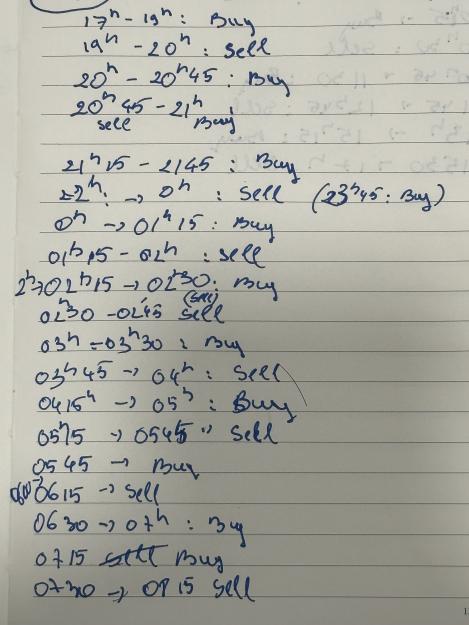 17h - 19h : Buy
19h - 20h : Sell
20h - 20h45 : Buy
20h45 - 21h
sell Buy
21h15 - 2145 : Buy
22h : → 0h : Sell (23h45 : Buy)
0h → 01h15 : Buy
01h15 - 02h : Sell
2h → 02h15 → 02h30 : Buy
(Sell)
02h30 - 0245 Sell
03h - 03h30 : Buy
03h45 → 04h : Sell
0415h → 05h : Buy
05h15 → 0545 " Sell
0545 → Buy
0600 → 0615 → Sell
0630 → 07h : Buy
0715 Buy
0730 → 0815 Sell